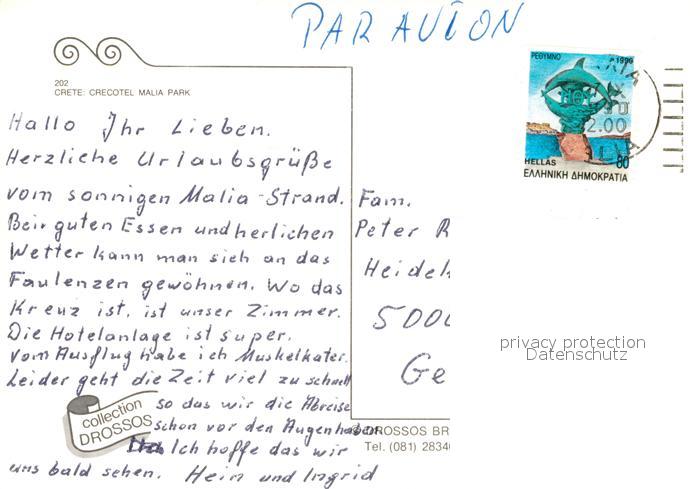 PAR AVION
202
CRETE: CRECOTEL MALIA PARK
ΡΕΘΥΜΝΟ 1990
2.00
HELLAS 80
ΕΛΛΗΝΙΚΗ ΔΗΜΟΚΡΑΤΙΑ
Hallo Ihr Lieben.
Herzliche Urlaubsgrüße
vom sonnigen Malia-Strand.
Bein guten Essen und herlichen
Wetter kann man sich an das
Faulenzen gewöhnen. Wo das
Kreuz ist, ist unser Zimmer.
Die Hotelanlage ist super.
Vom Ausflug habe ich Muskelkater.
Leider geht die Zeit viel zu schnell
so das wir die Abreise
schon vor den Augen haben
Ich hoffe das wir
uns bald sehen. Hein und Ingrid
Fam.
Peter R
Heidek
5000
Ge
privacy protection
Datenschutz
collection
DROSSOS
© DROSSOS BR
Tel. (081) 2834